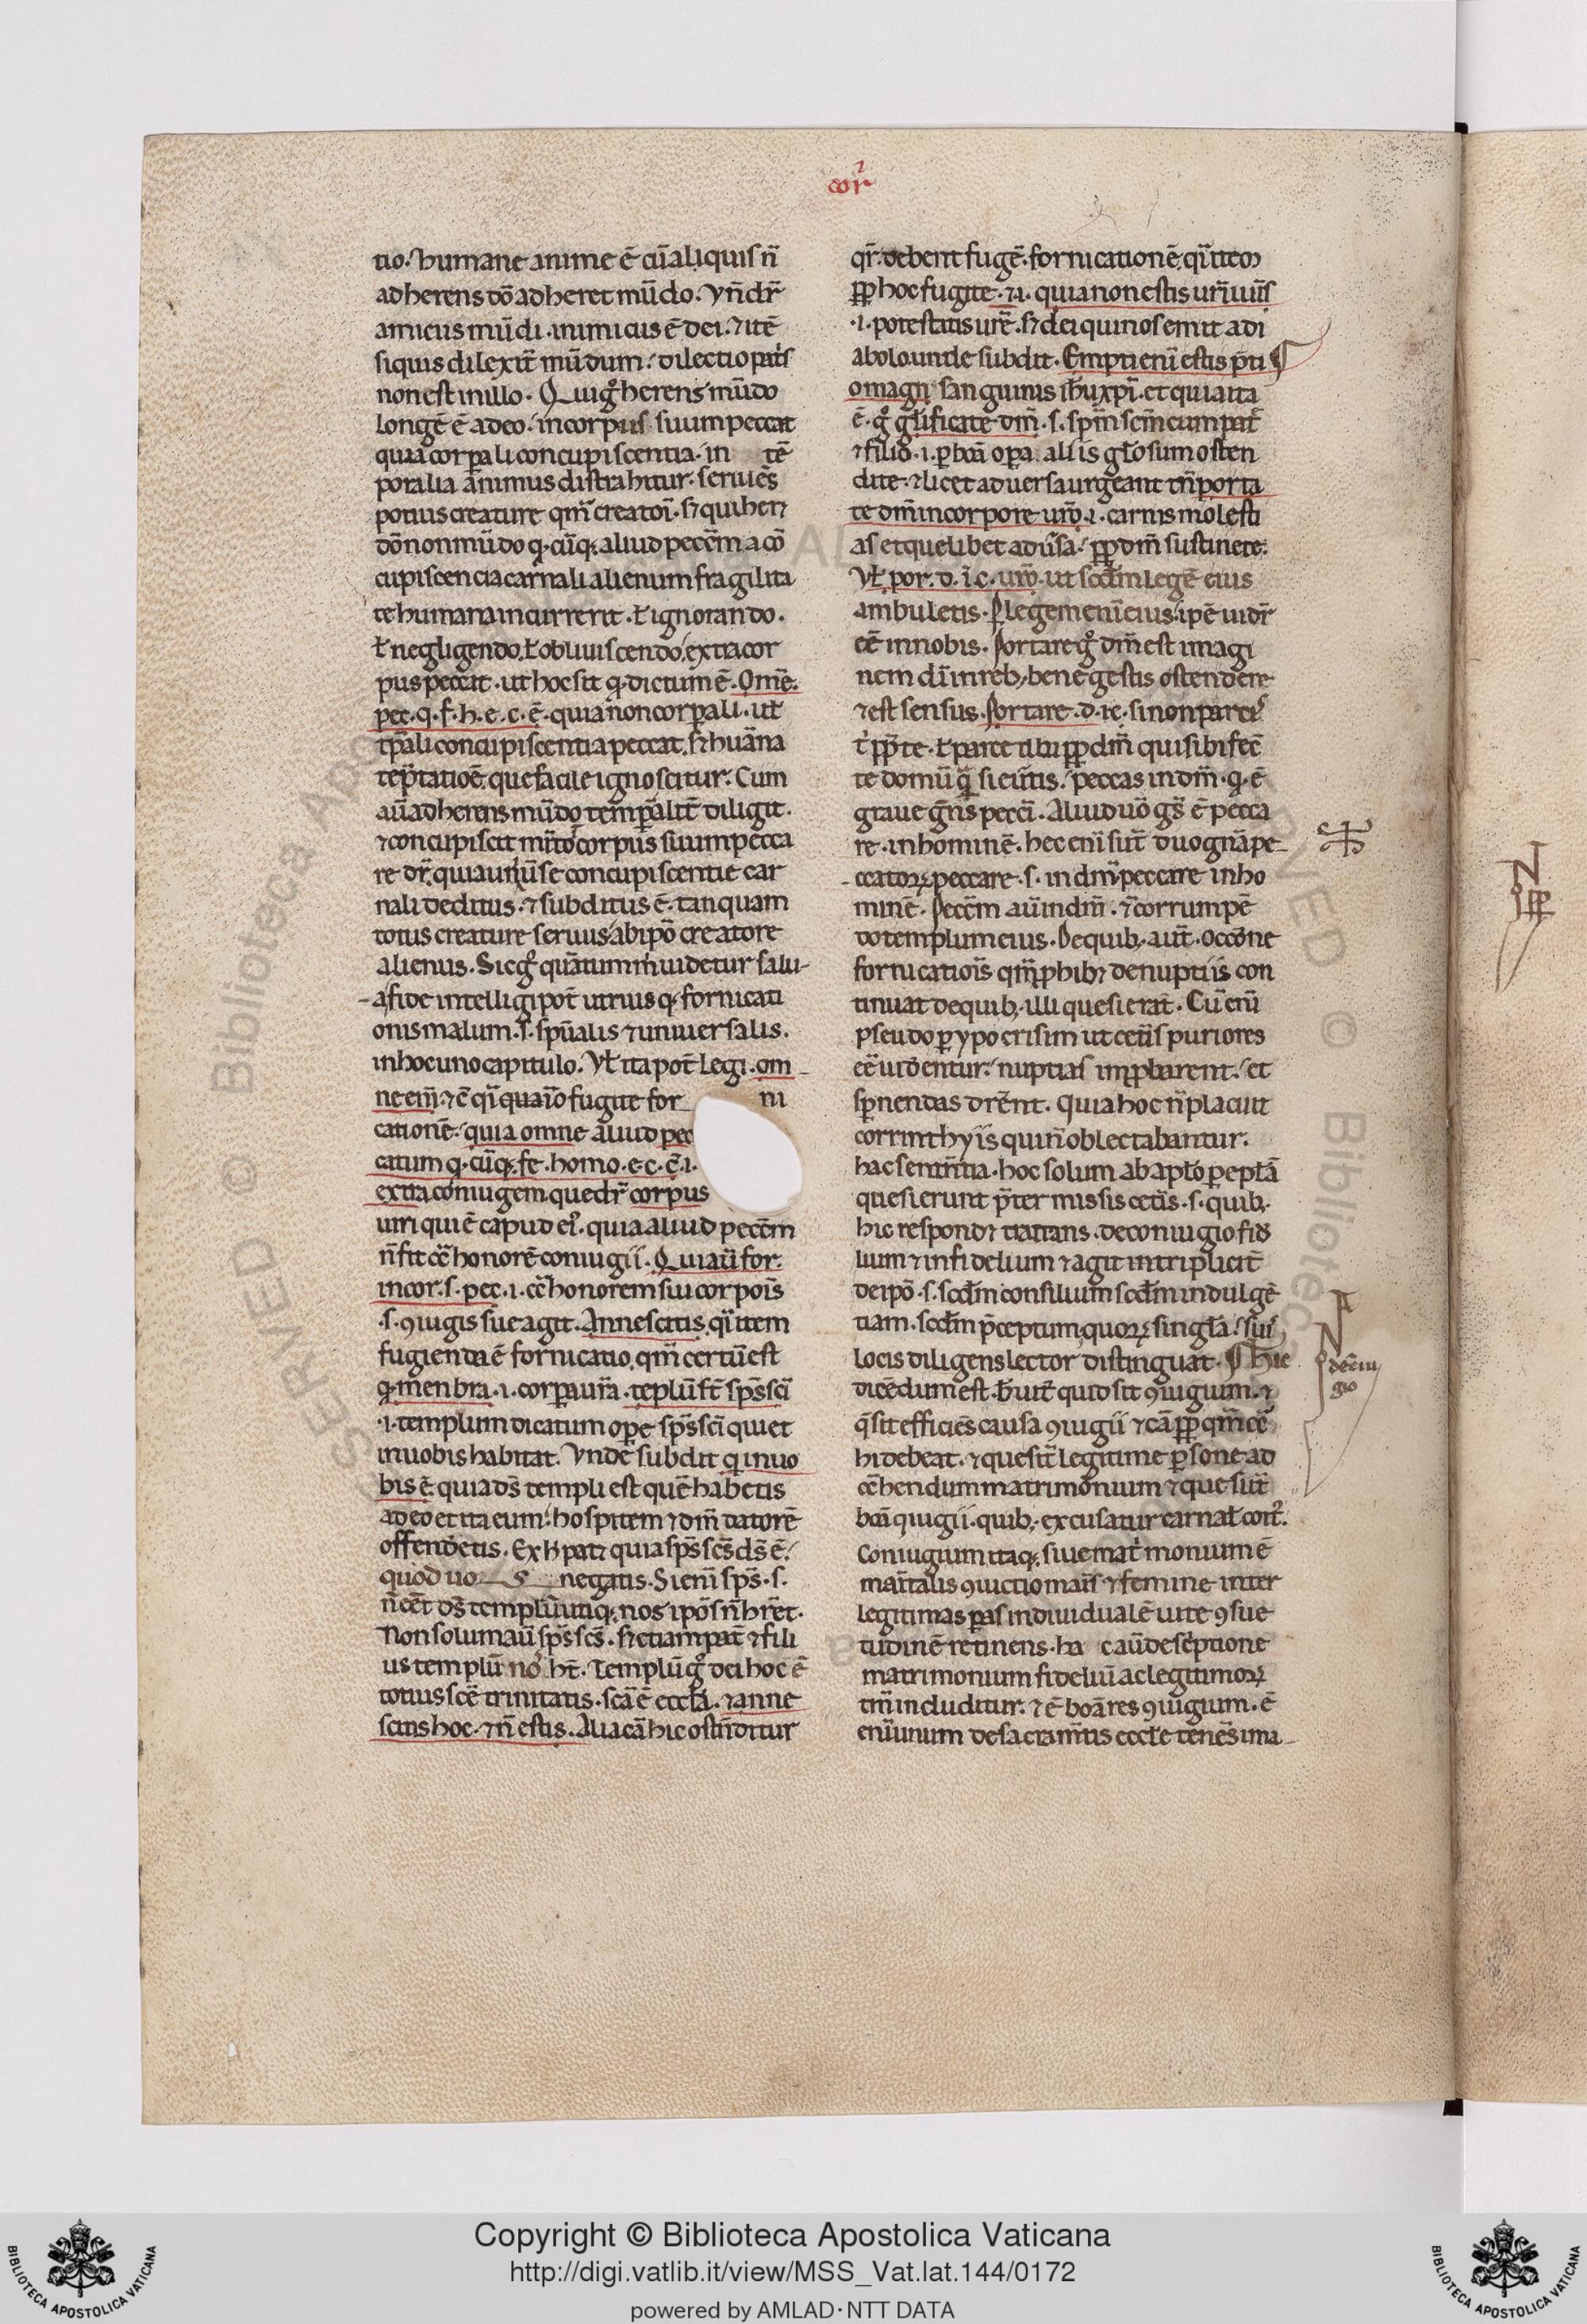 cor᷑
tio. humane anime ē cū aliquis n̄
adherens dō adheret mūdo. Vn̄ dr̄
amicus mūdi. inimicus ē dei. ⁊ itē
siquis dilexit̄ mūdum. dilectio pat̓s
non est in illo. Qui gͦ herens mūdo
longē ē a deo. in corpus suum peccat
quia corꝑali concupiscentia. in tē
poralia animus distrahitur. seruiēs
potius creature qm̄ creatoī. sꝫ qui heret
dō non mūdo q. cūq; aliud pecc̄m a cō
cupiscencia carnali alienum fragilita
te humana incurrerit. ł ignorando.
ł negligendo, ł obliuiscendo, extra cor
pus peccat. ut hoc sit q. dictum ē. Om̄e.
pec. q. f. h. e. c. ē. quia non corꝑali. ut̄
tꝑali concupiscentia peccat, sꝫ huāna
tēptatiōe, que facile ignoscitur. Cum
aū adherens mūdo temꝑalit̄ diligit.
⁊ concupiscit m̄ito corpus suum pecca
re dr̄. quia uniūse concupiscentie car
nali deditus. ⁊ subditus ē. tanquam
totus creature seruus ab ip̄o creatore
alienus. Sic gͦ quātum m̓ uidetur salu-
-a fide intelligi pot̄ utriusq; fornicati
onis malum. s. sp̄ualis ⁊ uniuersalis.
in hoc uno capitulo. Vł ita pot̄ legi. om-
ne em̄. ⁊c̄ q̄i quaīo fugite for ni
cationē. quia omne aliud pec
catum q. cūq; fe. homo. e. c. ē. i.
extra coniugem que dr̄ corpus
uiri qui ē capud eī. quia aliud pecc̄m
n̄ fit cc̄ honorē coniugii. Quia ū for.
in cor. s. pec. i. cc̄ honorem sui corpoīs
.s. ꝯiugis sue agit. An nescitis, q̄i item
fugienda ē fornicatio, qm̄ certū est
q. menbra. i. corꝑa ur̄a. tēplū st̄ sp̄s sc̄i
.i. templum dicatum oꝑe sp̄s sc̄i qui et
in uobis habitat. Vnde subdit q̇ in uo
bis ē quia ds̄ templi est quē habetis
a deo et ita eum hospitem ⁊ dm̄ datorē
offendetis. Ex h̓ patꝫ quia sp̄s scs̄ ds̄ ē.
quod uo s negatis. Si eni sp̄s. s.
n̄ cēt ds̄ templū utiq; nos ip̄os n̄ hr̄et.
Non solum aū sp̄s scs̄. sꝫ etiam pat̄ ⁊ fili
us templū noͣ ht̄. Templū gͦ dei hoc ē
totius scē trinitatis. scā ē eccła. ⁊ an ne
scitis hoc. ⁊ n̄ estis. Alia cā hic ostn̄ditur
qr̄. debent fugē. fornicationē, q̄i iteꝫ
ꝓp hoc fugite. ⁊ i. quia non estis ur̄i uīs
.i. potestatis ur̄e. sꝫ dei qui nos emit a di
abolo. unde subdit. Empti eni estis p̄ti
o magn̄ sanguinis ih̄u xp̄i. et quia ita
ē. gͦ gl̄ificate dm̄. s. sp̄m sc̄m cum pat̄
⁊ filio. i. ꝑ bōa oꝑa. aliis gło̅sum osten
dite. ⁊ licet aduersa urgeant tn̄ porta
te dm̄ in corpore ur̄o. i. carnis molesti
as et quelibet adūsa. ꝓp dm̄ sustinete.
Vł por. d. i. c. uro. ut scd̄m legē eius
ambuletis. Ꝑ legem eni eius. ip̄e uidr̄
eē in nobis. Portare gͦ dm̄ est imagi
nem dī in reb; bene gestis ostendere
⁊ est sensus. Portare. d. ic. si non parcī
t̓ ꝓp te. ł parce tibi ꝓp dm̄ qui sibi fec̄
te domū q̄i si euītis. peccas in dm̄. q. ē
graue gn̄s pecci. Aliud uͦ gs̄ ē pecca
re. in hominē. hec eni sūt duo gn̄a pe-
-ccatoꝝ peccare. s. in dm̄ peccare in ho
minē. Pecc̄m aū in dm̄. ē corrumpē
do templum eius. De quib; aut̄. Occōne
fornicatiōis qm̄ ꝓhibꝫ de nuptiis con
tinuat de quib; illi quesierāt. Cū eni
pseudo ꝑ ypocrisim ut cet̄is puriores
eē uidentur. nuptias imꝓbarent. et
sꝑnendas dr̄ent. quia hoc n̄ placuit
corrinthyis qui n̄ oblectabantur.
hac sentn̄tia. hoc solum ab apło ꝑ epłā
quesierunt p̄ter missis cet̄is. s. quib;
hic respondꝫ tractans. de coniugio fid
lium ⁊ infidelium ⁊ agit in triplicit̄
de ip̄o. s. scd̄m consilium scd̄m indulgē
tiam. scd̄m p̄ceptum, quoꝝ singła. suis
locis diligens lector distinguat. ¶ hic
dicēdum est. b̄uit̄ quid sit ꝯiugium. ⁊
q̄ sit efficiēs causa ꝯiugii ⁊ cā ꝓp qm̄ ct̄
hi debeat. ⁊ que sīt legitime ꝑsone ad
ct̄hendum matrimonium ⁊ que sūt
bōa ꝯiugii. quib; excusatur carnal̄ coit᷑.
Coniugium itaq; siue mat̓monium ē
maītalis ꝯiuctio mais̄ ⁊ femine inter
legitimas ꝑsas indiuidualē uite ꝯsue
tudinē retinens. ha c aū descͥptione
matrimonium fideliū ac legitimoꝝ
tm̄ includitur. ⁊ ē boā res ꝯiugium. ē
eni unum de sacram̄tis eccłe tenēs ima-
de ꝯiu
gio
Copyright © Biblioteca Apostolica Vaticana
http://digi.vatlib.it/view/MSS_Vat.lat.144/0172
powered by AMLAD·NTT DATA
BIBLIOTECA APOSTOLICA VATICANA
BIBLIOTECA APOSTOLICA VATICANA